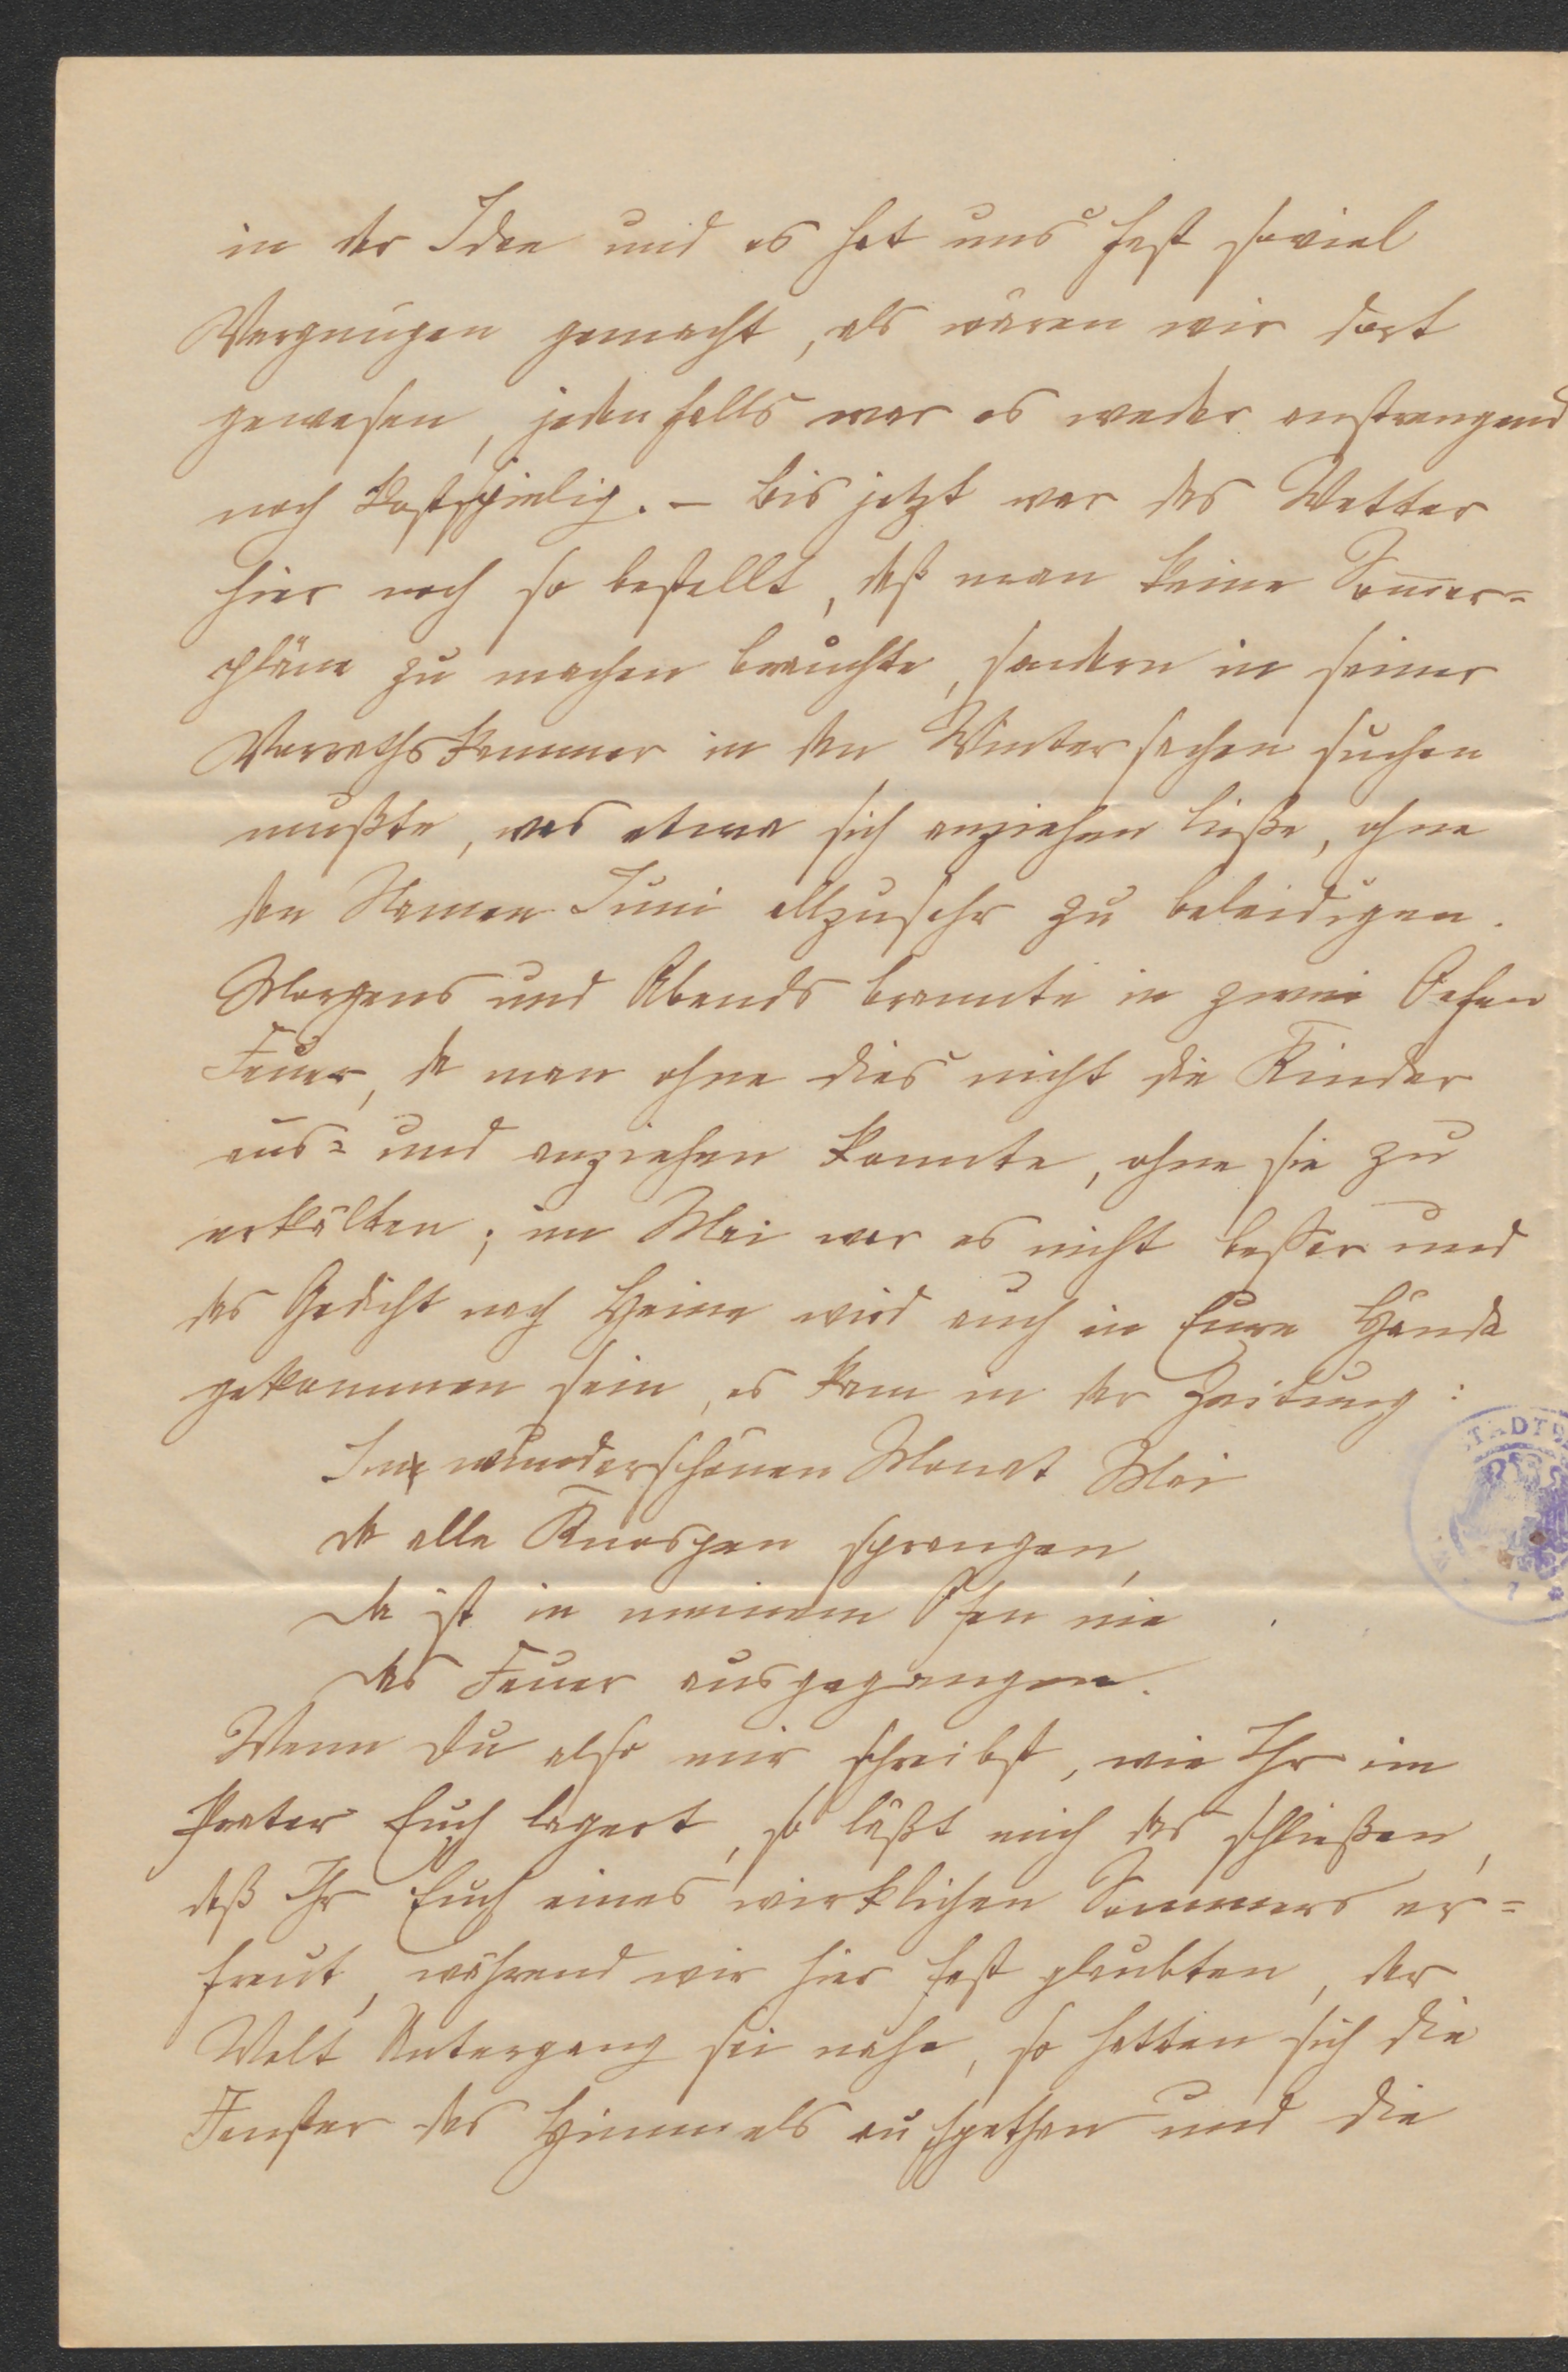 in der Idee und es hat uns fast soviel
Vergnügen gemacht, als wären wir dort
gewesen, jedenfalls war es weder anstrengend
noch kostspielig. – Bis jetzt war das Wetter
hier noch so bestellt, daß man keine Som̅er=
pläne zu machen brauchte, sondern in seiner
Vorrathskammer in den Wintersachen suchen
mußte, was etwa sich anziehen ließe, ohne
den Namen Juni allzusehr zu beleidigen.
Morgens und Abends brannte in zwei Oefen
Feuer, da man ohne dies nicht die Kinder
aus= und anziehen konnte, ohne sie zu
erkälten; im Mai war es nicht besser und
das Gedicht nach Heine wird auch in Eure Hände
gekommen sein, es kam in der Zeitung:
Im wunderschönen Monat Mai
da alle Knospen sprangen,
da ist in meinem Ofen nie
das Feuer ausgegangen.
Wenn Du also mir schreibst, wie Ihr im
Prater Euch lagert, so läßt mich das schließen,
daß Ihr Euch eines wirklichen Sommers er=
freut, während wir hier fast glaubten, der
Welt Untergang sei nahe, so hatten sich die
Fenster des Himmels aufgethan und die
STADT